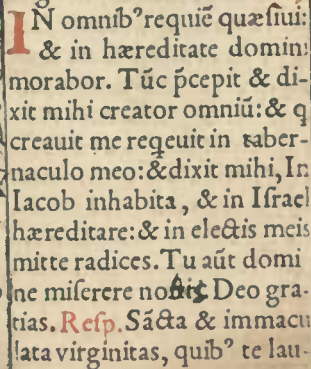 IN omnib⁹ requiē quæſiui:
& in hæreditate domini
morabor. Tūc p̄cepit & di-
xit mihi creator omniū: & q
creauit me reqeuit in taber-
naculo meo: & dixit mihi, In
Iacob inhabita, & in Iſrael
hæreditare: & in electis meis
mitte radices. Tu aūt domi
ne miſerere nobis Deo gra-
tias. Reſp. Sācta & immacu
lata virginitas, quib⁹ te lau-